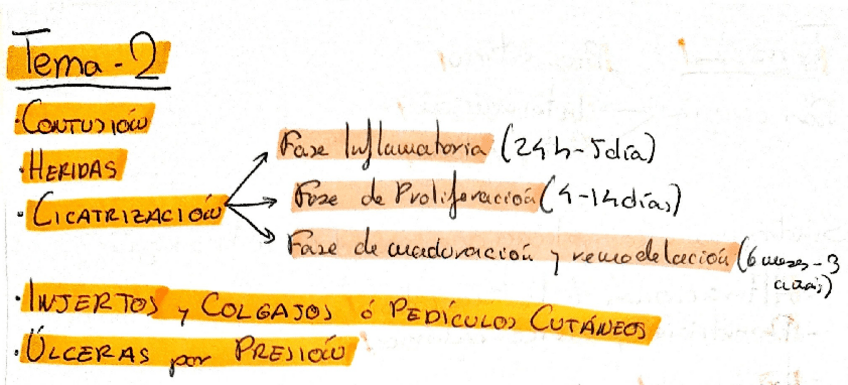 Tema - 2
· CONTUSIÓN
· HERIDAS
· CICATRIZACIÓN
Fase Inflamatoria (24h - 5día)
Fase de Proliferación (4-14días)
Fase de maduración y remodelación (6 meses - 3
años)
· INJERTOS y COLGAJOS ó PEDÍCULOS CUTÁNEOS
· ÚLCERAS por PRESIÓN